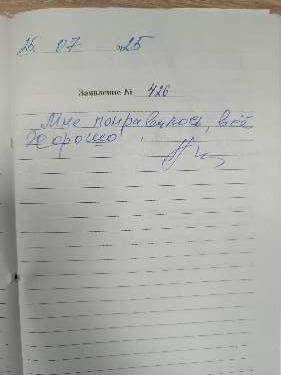 25. 07 25
Заявление № 426
Мне понравилось, всё
хорошо.